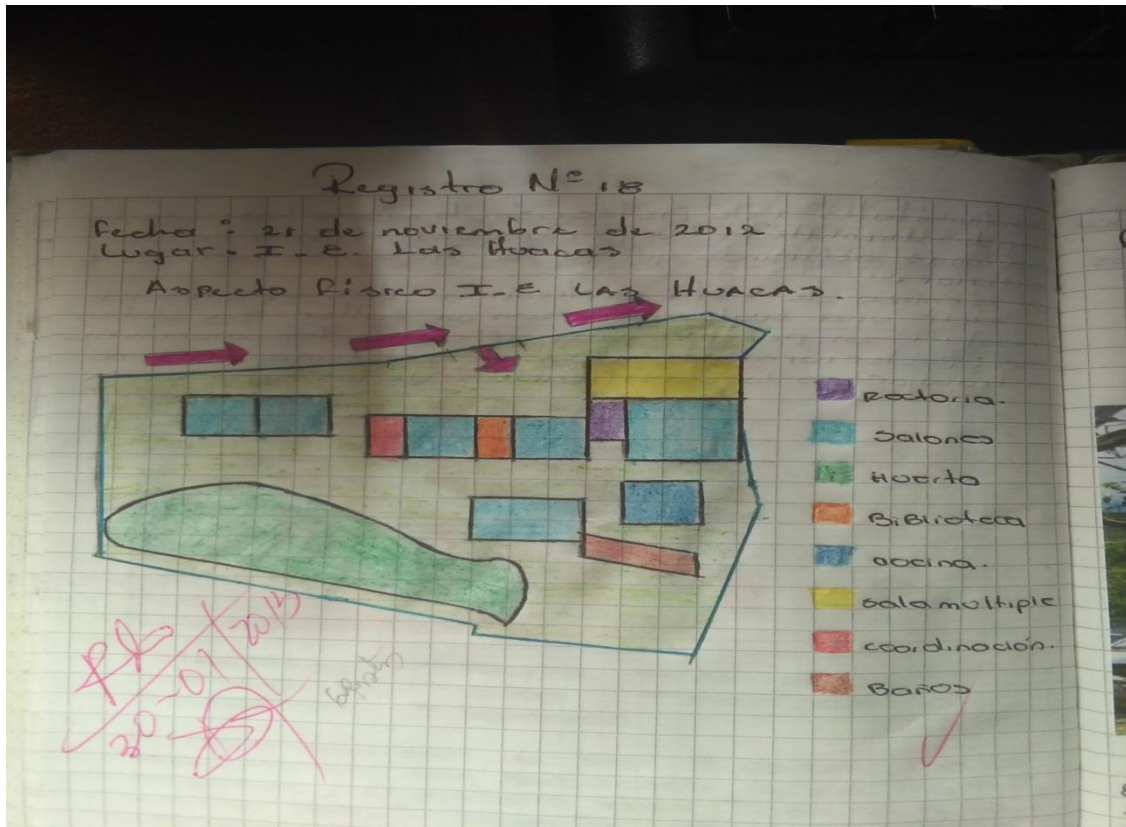 Registro Nº 18
Fecha: 21 de noviembre de 2012
Lugar- I. E. Las Huacas
Aspecto Físico I. E LAS HUACAS.
Rectoria.
Salones
Huerta
Biblioteca
cocina.
sala multiple
coordinación.
Baños
30-01
2013